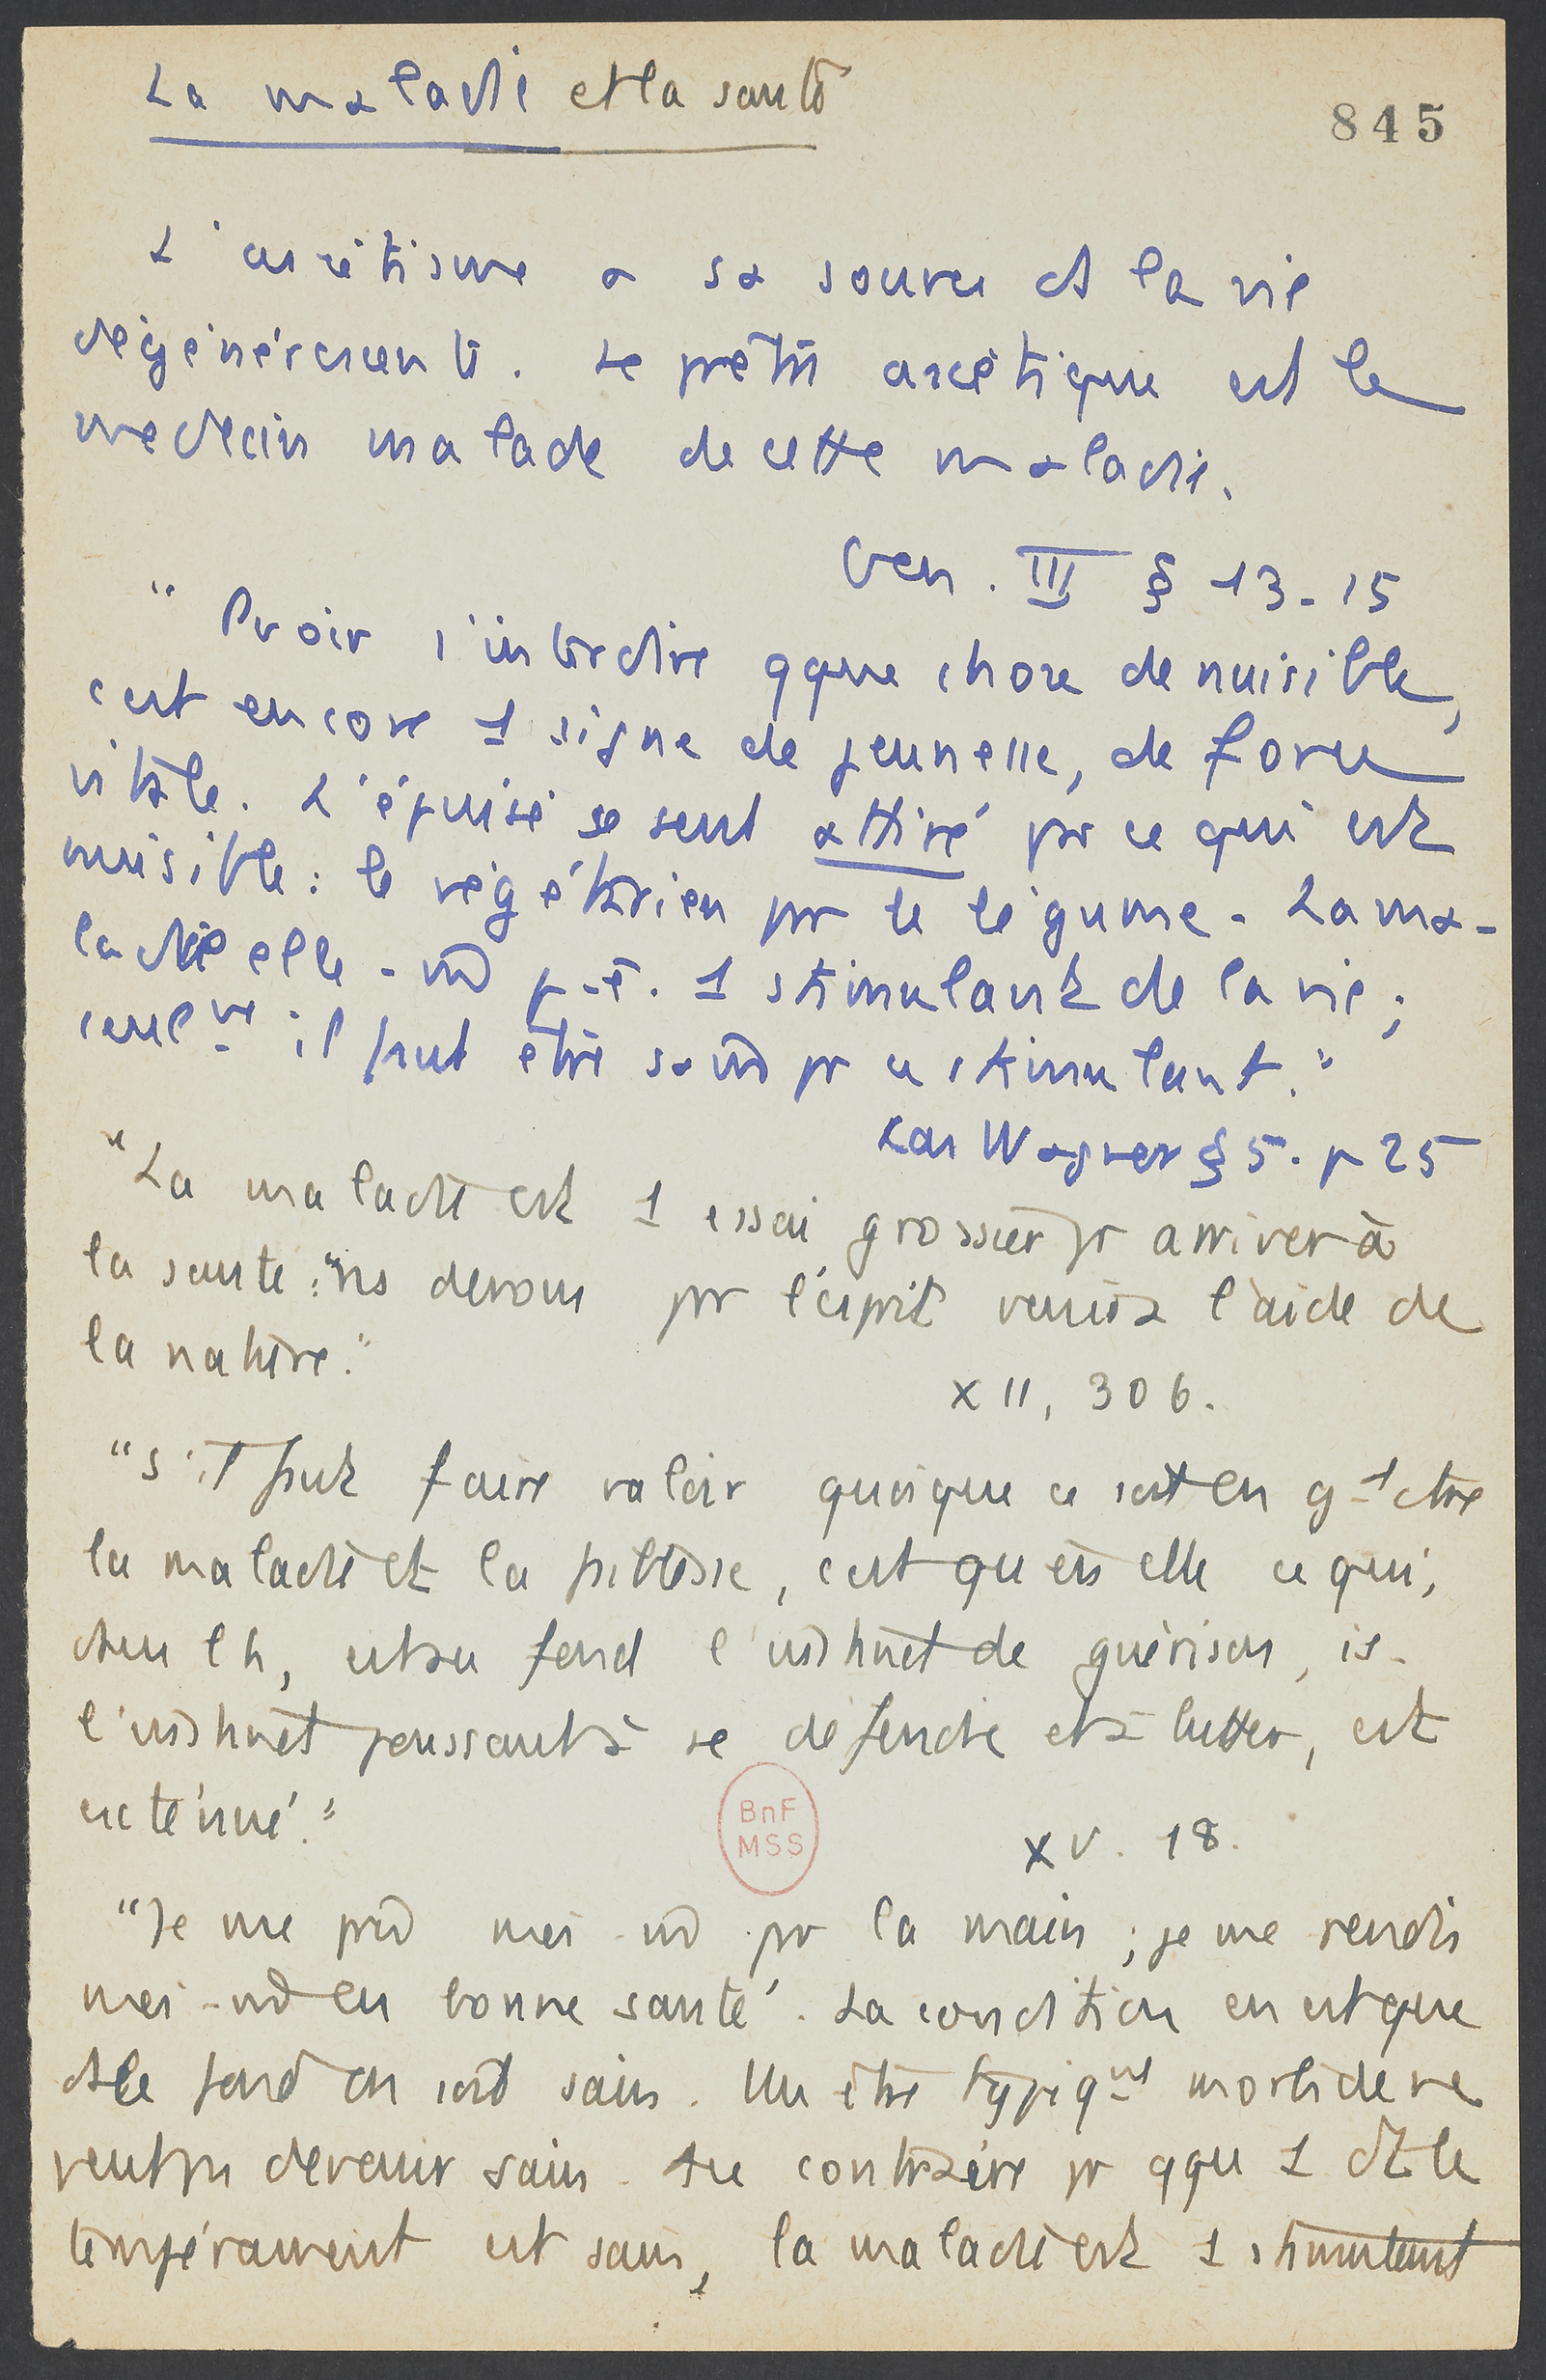 La maladie et la santé
845
L'ascétisme a sa source ds la vie
dégénérescente. Le prêtre ascétique est le
medecin malade de cette maladie.
Gen. III § 13-15
"Pvoir s'interdire qque chose de nuisible,
c'est encore 1 signe de jeunesse, de force
vitale. L'épuisé se sent attiré par ce qui est
nuisible: le végétarien par le légume. La ma-
ladie elle-m̂ p-ê. 1 stimulant de la vie;
seulnt il faut être sain pr ce stimulant."
Cas Wagner § 5. p 25
"La maladie est 1 essai grossier pr arriver à
la santé: ns devons par l'esprit venir à l'aide de
la nature."
XII, 306.
"S'il faut faire valoir quoique ce soit en gl ctre
la maladie et la faiblesse, c'est qu'en elle ce qui,
chez l'h, est au fond l'instinct de guérison, ie.
l'instinct poussant à se défendre et à lutter, est
exténué."
BnF
MSS
XV. 18.
"Je me pris moi-m̂ par la main; je me rendis
moi-m̂ en bonne santé. La condition en est que
ds le fond on soit sain. Un être typiqnt morbide ne
peut pas devenir sain. Au contraire pr qqu 1 dt le
tempérament est sain, la maladie est 1 stimulant